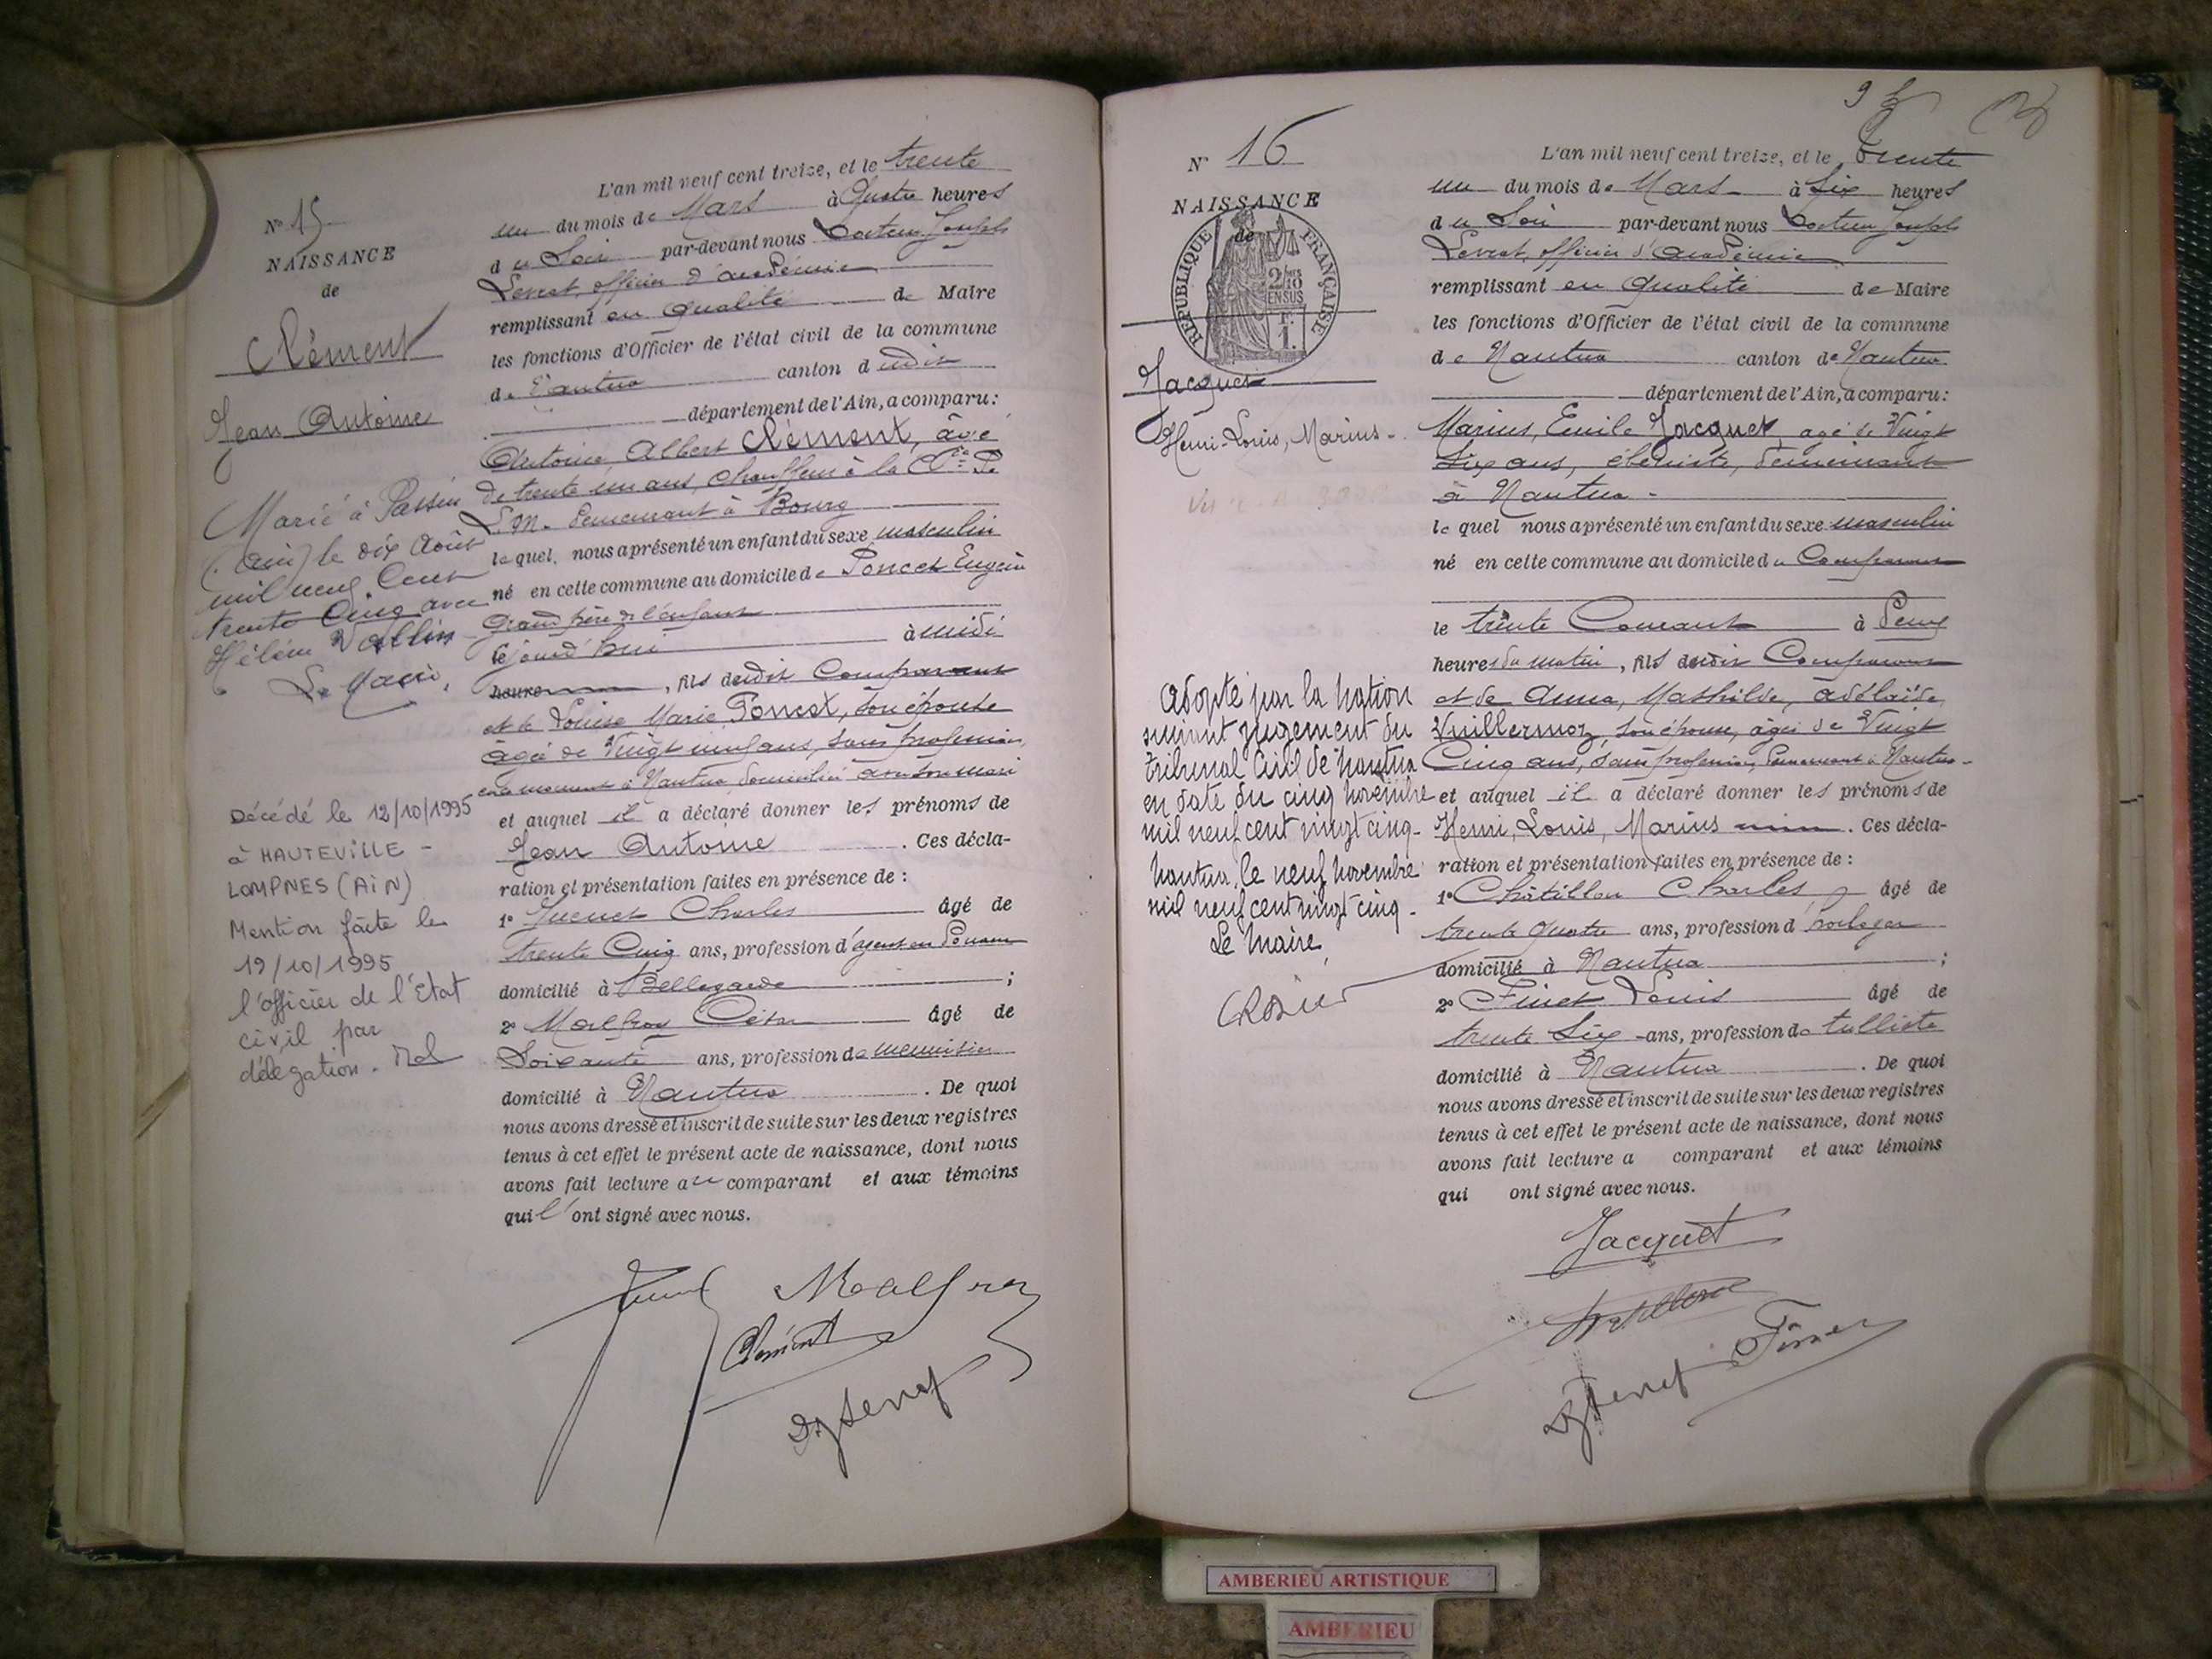 N° 15
NAISSANCE
de
Clément
Jean Antoine
Marié à Passin
(Ain) le dix Août
mil neuf Cent
trente Cinq avec
Hélène Vallin
Le Maire,
Décédé le 12/10/1995
à HAUTEVILLE -
LOMPNES (AIN)
Mention faite le
19/10/1995
l'officier de l'Etat
civil par
délégation.
L'an mil neuf cent treize, et le trente
un du mois de Mars à Quatre heures
du Soir par-devant nous Docteur Joseph
officier d'académie
remplissant en qualité de Maire
les fonctions d'Officier de l'état civil de la commune
de Nantua canton dudit
département de l'Ain, a comparu :
Antoine Albert Clément, âgé
de trente un ans, chauffeur à la Cie P.
L. M. demeurant à Bourg
lequel nous a présenté un enfant du sexe masculin
né en cette commune au domicile de Poncet
Grand père de l'enfant
le jourd'hui à midi
heure , fils dudit Comparant
et de Louise Marie Poncet, son épouse
âgée de Vingt neuf ans, sans profession,
en ce moment à Nantua domiciliée avec son mari
et auquel il a déclaré donner les prénoms de
Jean Antoine . Ces décla-
ration et présentation faites en présence de :
1° Charles âgé de
trente Cinq ans, profession d'agent en Douane
domicilié à Bellegarde ;
2° Malfroy César âgé de
Soixante ans, profession de menuisier
domicilié à Nantua . De quoi
nous avons dressé et inscrit de suite sur les deux registres
tenus à cet effet le présent acte de naissance, dont nous
avons fait lecture au comparant et aux témoins
qui l'ont signé avec nous.
Malfroy
Clément
N° 16
NAISSANCE
de
REPUBLIQUE FRANÇAISE
2/10
EN SUS
F.
1.
Jacquet
Henri-Louis, Marius -
Adopté par la Nation
suivant jugement du
tribunal Civil de Nantua
en date du cinq Novembre
mil neuf cent vingt cinq -
Nantua, le neuf Novembre
mil neuf cent vingt cinq -
Le Maire,
L'an mil neuf cent treize, et le trente
un du mois de Mars à Six heures
du Soir par-devant nous Docteur Joseph
officier d'académie
remplissant en qualité de Maire
les fonctions d'Officier de l'état civil de la commune
de Nantua canton de Nantua
département de l'Ain, a comparu :
Marius, Emile Jacquet, âgé de Vingt
Six ans, ébéniste, demeurant
à Nantua -
lequel nous a présenté un enfant du sexe masculin
né en cette commune au domicile du Comparant
le trente Courant à Deux
heures du matin, fils dudit Comparant
et de Anna, Mathilde, Adélaïde
Vuillermoz, son épouse, âgée de Vingt
Cinq ans, sans profession, demeurant à Nantua -
et auquel il a déclaré donner les prénoms de
Henri, Louis, Marius . Ces décla-
ration et présentation faites en présence de :
1° Châtillon Charles, âgé de
trente quatre ans, profession d'horloger
domicilié à Nantua ;
2° Finet Louis âgé de
trente Six ans, profession de tulliste
domicilié à Nantua . De quoi
nous avons dressé et inscrit de suite sur les deux registres
tenus à cet effet le présent acte de naissance, dont nous
avons fait lecture a comparant et aux témoins
qui ont signé avec nous.
Jacquet
AMBERIEU ARTISTIQUE
AMBERIEU